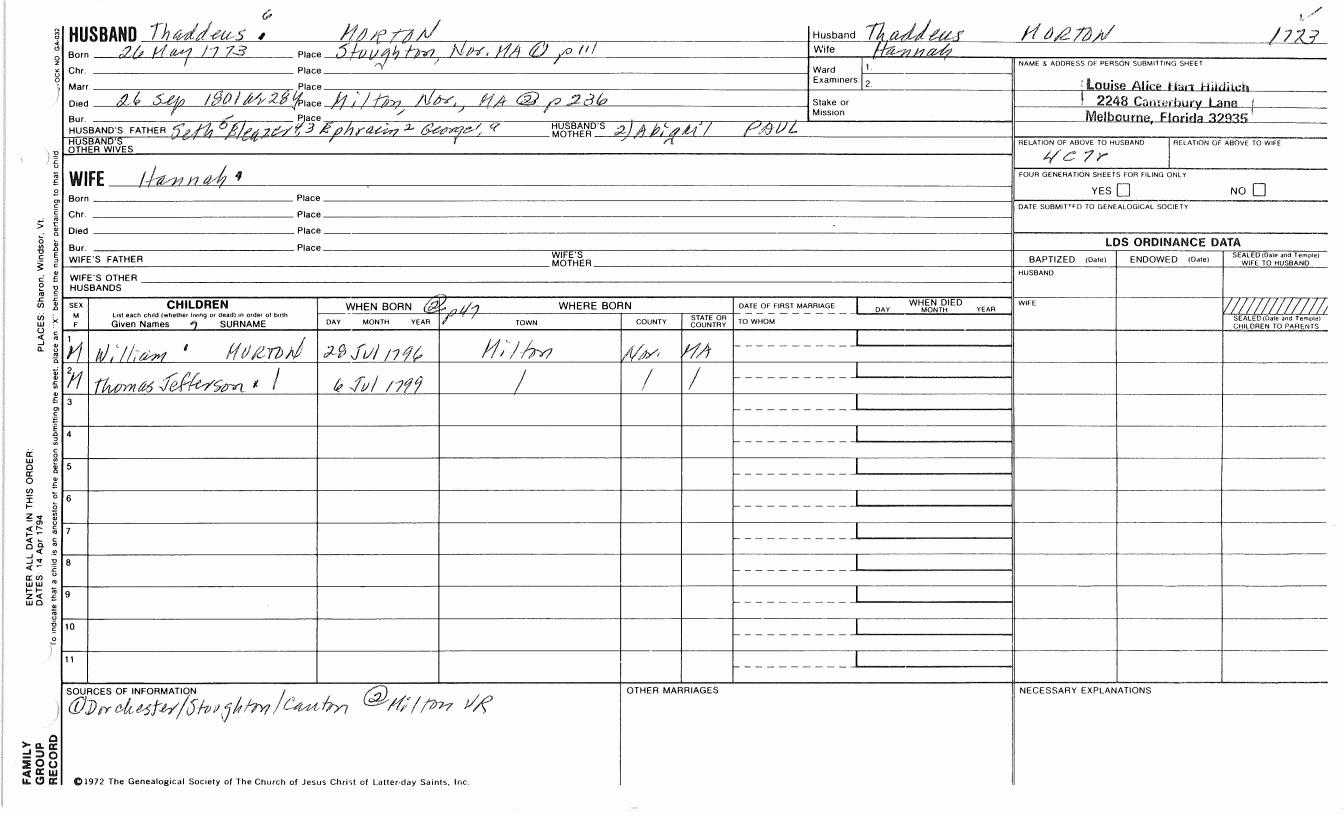 6
HUSBAND Thaddeus MORTON
Born 26 May 1773 Place Stoughton, Nor. MA ① p 111
Chr. Place
Marr Place
Died 26 Sep 1801 Place Milton, Nor., MA ② p 236
Bur. Place
HUSBAND'S FATHER Seth 5 Eleazer 4,3 Ephraim 2 George 1, HUSBAND'S MOTHER 2) Abigail PAUL
HUSBAND'S OTHER WIVES
WIFE Hannah
Born Place
Chr. Place
Died Place
Bur. Place
WIFE'S FATHER WIFE'S MOTHER
WIFE'S OTHER HUSBANDS
Husband Thaddeus MORTON 1723
Wife Hannah
Ward Examiners 1.
2.
Stake or Mission
NAME & ADDRESS OF PERSON SUBMITTING SHEET
Louise Alice Hart Hilditch
2248 Canterbury Lane
Melbourne, Florida 32935
RELATION OF ABOVE TO HUSBAND RELATION OF ABOVE TO WIFE
4C7r
FOUR GENERATION SHEETS FOR FILING ONLY
YES NO
DATE SUBMITTED TO GENEALOGICAL SOCIETY
LDS ORDINANCE DATA
BAPTIZED (Date) ENDOWED (Date) SEALED (Date and Temple) WIFE TO HUSBAND
HUSBAND
WIFE
SEALED (Date and Temple) CHILDREN TO PARENTS
SEX M F
CHILDREN
List each child (whether living or dead) in order of birth
Given Names 7 SURNAME
WHEN BORN ② p47
DAY MONTH YEAR
WHERE BORN
TOWN COUNTY STATE OR COUNTRY
DATE OF FIRST MARRIAGE
TO WHOM
WHEN DIED
DAY MONTH YEAR
1 M William MORTON 28 Jul 1796 Milton Nor. MA
2 M Thomas Jefferson / 6 Jul 1799 / / /
3
4
5
6
7
8
9
10
11
SOURCES OF INFORMATION
① Dorchester/Stoughton/Canton ② Milton VR
OTHER MARRIAGES
NECESSARY EXPLANATIONS
©1972 The Genealogical Society of The Church of Jesus Christ of Latter-day Saints, Inc.
FAMILY GROUP RECORD
ENTER ALL DATA IN THIS ORDER:
DATES 14 Apr 1794
PLACES: Sharon, Windsor, Vt.
To indicate that a child is an ancestor of the person submitting the sheet, place an "X" behind the number pertaining to that child
OCK NO GA-032